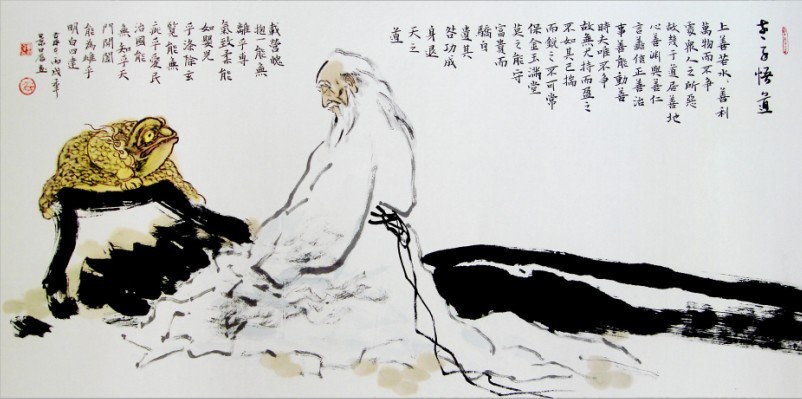 老子悟道
上善若水〻善利
萬物而不争
處衆人之所惡
故幾于道居善地
心善淵與善仁
言善信正善治
事善能動善
時夫唯不争
故無尤持而盈之
不如其已揣
而銳之不可常
保金玉滿堂
莫之能守
富貴而
驕自
遺其
咎功成
身退
天之
道
載營魄
抱一能無
離乎專
氣致柔能
如嬰兒
乎滌除玄
覽能無
疵乎愛民
治國能
無知乎天
門開闔
能為雌乎
明白四達
丙戌年